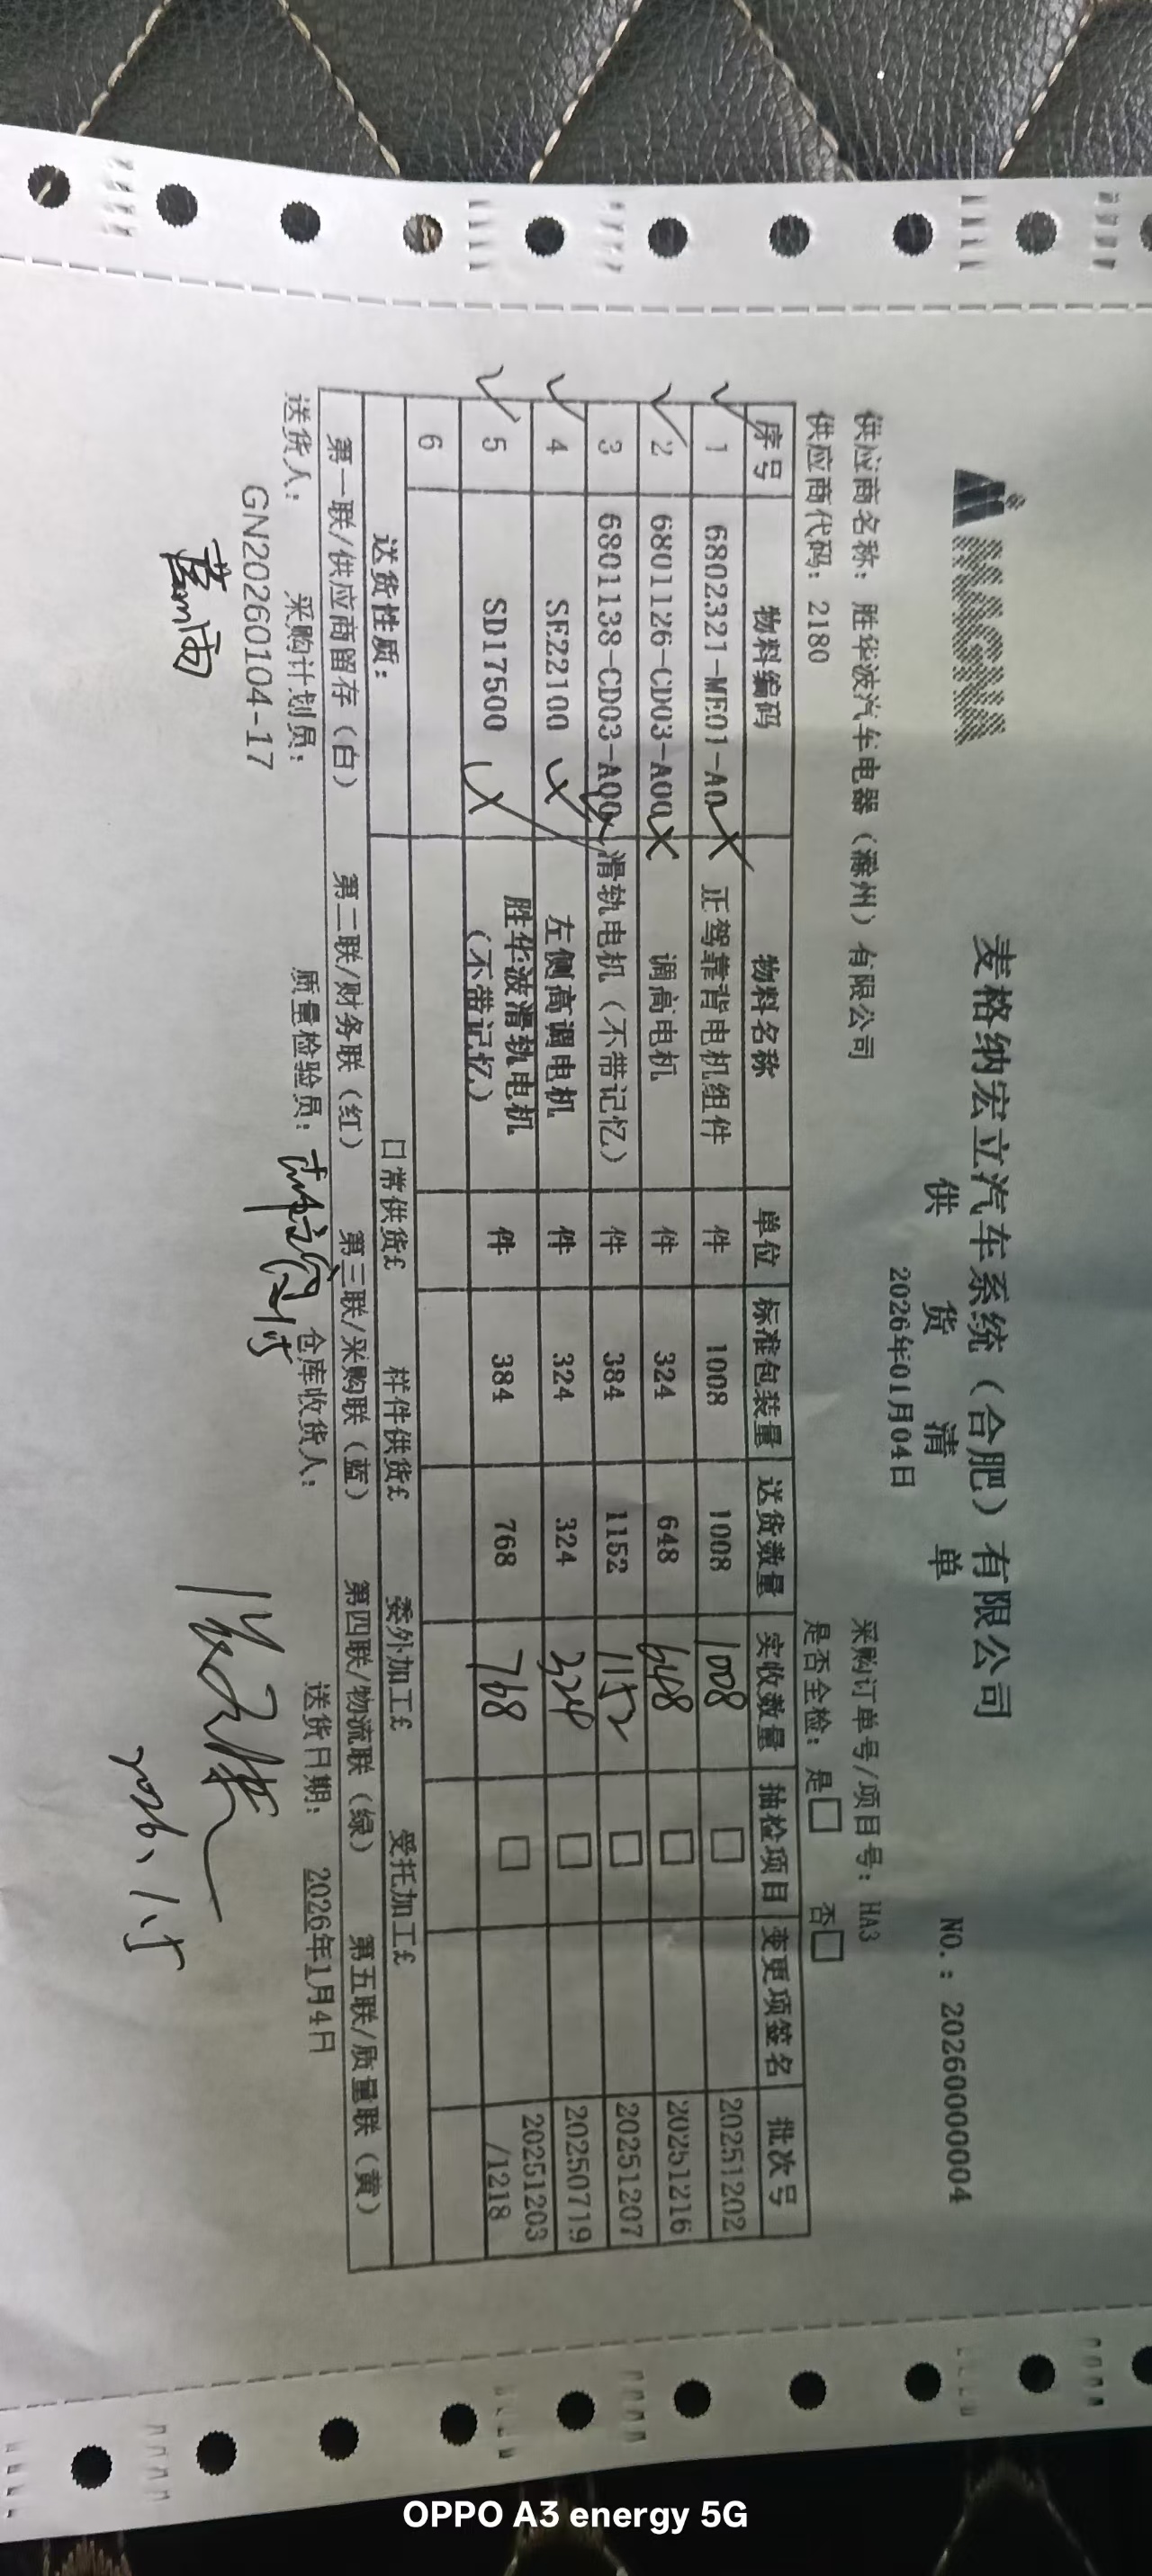 MAGNA
麦格纳宏立汽车系统（合肥）有限公司
供 货 清 单
NO.：20260000004
2026年01月04日
供应商名称：胜华波汽车电器（滁州）有限公司
采购订单号/项目号：HA3
供应商代码：2180
是否全检：是□ 否□
序号 物料编码 物料名称 单位 标准包装量 送货数量 实收数量 抽检项目 变更项签名 批次号
1 6802321-ME01-A0 正驾靠背电机组件 件 1008 1008 1008 □ 20251202
2 6801126-CD03-A00 调高电机 件 324 648 648 □ 20251216
3 6801138-CD03-A00 滑轨电机（不带记忆） 件 384 1152 1152 □ 20251207
4 SE22100 左侧高调电机 件 324 324 324 □ 20250719
5 SD17500 胜华波滑轨电机（不带记忆） 件 384 768 768 □ 20251203/1218
6
送货性质： 口常供货£ 样件供货£ 委外加工£ 受托加工£
第一联/供应商留存（白） 第二联/财务联（红） 第三联/采购联（蓝） 第四联/物流联（绿） 第五联/质量联（黄）
送货人： 采购计划员： 质量检验员： 仓库收货人： 送货日期： 2026年1月4日
GN20260104-17
2026、1.5
OPPO A3 energy 5G